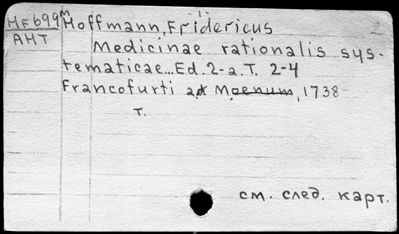 MF699M Hoffmann, Fridericus 2
AHT
Medicinae rationalis sys-
tematicae... Ed. 2-a. T. 2-4
Francofurti ad Moenum, 1738
т.
см. след. карт.